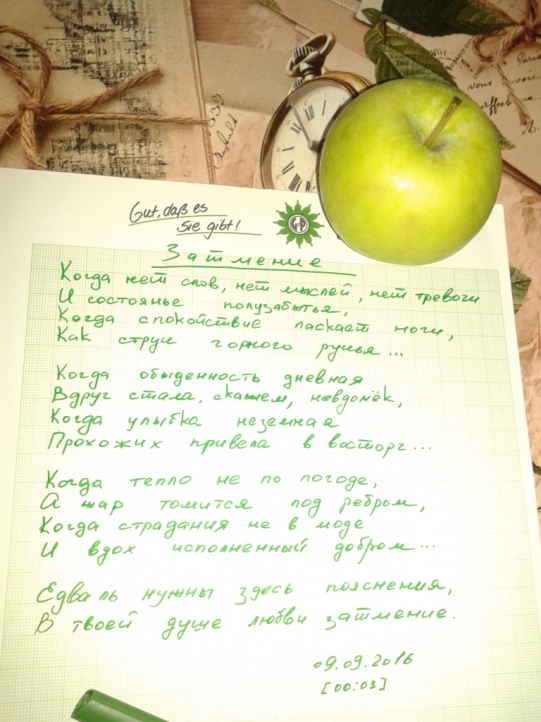 Gut, daß es
Sie gibt!
GdP
Затмение
Когда нет слов, нет мыслей, нет тревоги
И состоянье полузабытья,
Когда спокойствие ласкает ноги,
Как струи горного ручья...
Когда обыденность дневная
Вдруг стала, скажем, невдомёк,
Когда улыбка неземная
Прохожих привела в восторг...
Когда тепло не по погоде,
А жар томится под ребром,
Когда страдания не в моде
И вдох исполненный добром...
Едва ль нужны здесь пояснения,
В твоей душе любви затмение.
09.09.2016
[00:03]